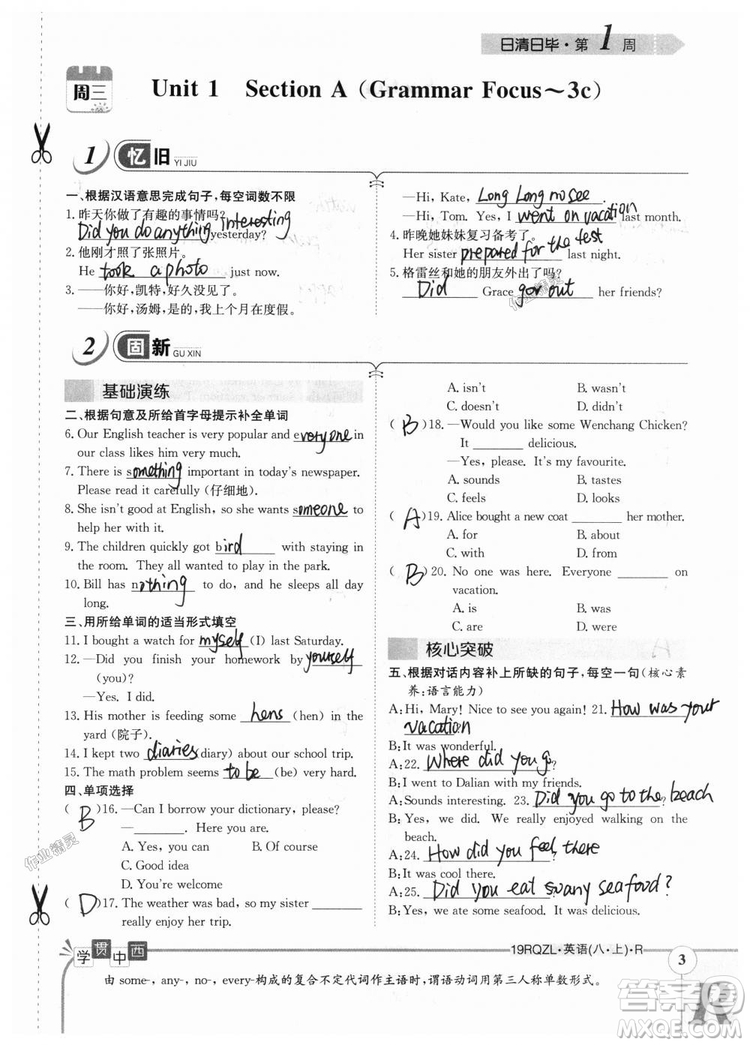 日清日毕·第1周
周三
Unit 1 Section A (Grammar Focus～3c)
1 忆旧 YI JIU
一、根据汉语意思完成句子,每空词数不限
1. 昨天你做了有趣的事情吗?
Did you do anything interesting yesterday?
2. 他刚才照了张照片。
He took a photo just now.
3. ——你好,凯特,好久没见了。
——你好,汤姆,是的,我上个月去度假了。
—Hi, Kate, Long Long no see.
—Hi, Tom. Yes, I went on vacation last month.
4. 昨晚她妹妹复习备考了。
Her sister prepared for the test last night.
5. 格雷丝和她的朋友外出了吗?
Did Grace go out her friends?
2 固新 GU XIN
基础演练
二、根据句意及所给首字母提示补全单词
6. Our English teacher is very popular and everyone in
our class likes him very much.
7. There is something important in today's newspaper.
Please read it carefully (仔细地).
8. She isn't good at English, so she wants someone to
help her with it.
9. The children quickly got bird with staying in
the room. They all wanted to play in the park.
10. Bill has nothing to do, and he sleeps all day
long.
三、用所给单词的适当形式填空
11. I bought a watch for myself (I) last Saturday.
12. —Did you finish your homework by yourself
(you)?
—Yes. I did.
13. His mother is feeding some hens (hen) in the
yard (院子).
14. I kept two diaries diary) about our school trip.
15. The math problem seems to be (be) very hard.
四、单项选择
( B )16. —Can I borrow your dictionary, please?
—______. Here you are.
A. Yes, you can B. Of course
C. Good idea
D. You're welcome
( D )17. The weather was bad, so my sister ______
really enjoy her trip.
A. isn't B. wasn't
C. doesn't D. didn't
( B )18. —Would you like some Wenchang Chicken?
It ______ delicious.
—Yes, please. It's my favourite.
A. sounds B. tastes
C. feels D. looks
( A )19. Alice bought a new coat ______ her mother.
A. for B. about
C. with D. from
( B )20. No one was here. Everyone ______ on
vacation.
A. is B. was
C. are D. were
核心突破
五、根据对话内容补上所缺的句子,每空一句(核心素
养:语言能力)
A: Hi, Mary! Nice to see you again! 21. How was your
vacation
B: It was wonderful.
A: 22. Where did you go
B: I went to Dalian with my friends.
A: Sounds interesting. 23. Did you go to the beach
B: Of course we did. We really enjoyed walking on the
beach.
A: 24. How did you feel there
B: It was cool there.
A: 25. Did you eat any seafood?
B: Yes, we did. We ate lots of seafood.
学贯中西
由 some-, any-, no-, every-构成的复合不定代词作主语时,谓语动词用第三人称单数形式。
19RQZL·英语(八·上)·R
3
作业精灵
作业精灵
答案圈